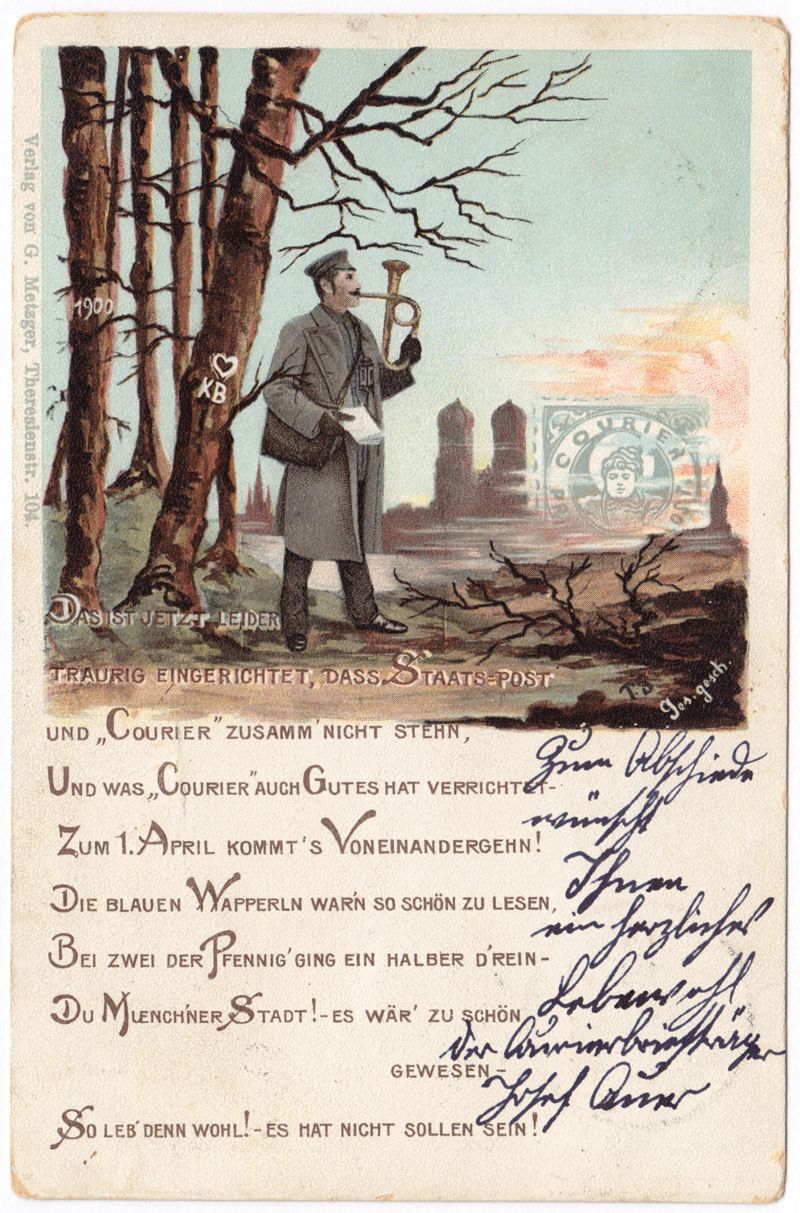 Verlag von G. Metzger, Theresienstr. 104.
1900
KB
COURIER
DAS IST JETZT LEIDER
TRAURIG EINGERICHTET, DASS STAATS=POST
UND „COURIER" ZUSAMM' NICHT STEHN,
UND WAS „COURIER" AUCH GUTES HAT VERRICHTET-
ZUM 1. APRIL KOMMT'S VONEINANDERGEHN!
DIE BLAUEN WAPPERLN WAR'N SO SCHÖN ZU LESEN,
BEI ZWEI DER PFENNIG' GING EIN HALBER D'REIN-
DU MUENCH'NER STADT!-ES WÄR' ZU SCHÖN
GEWESEN-
SO LEB' DENN WOHL!-ES HAT NICHT SOLLEN SEIN!
Ges. gesch.
Zum Abschiede
wünscht
Ihnen
ein herzliches
Lebewohl
der Courierbriefträger
Josef Auer